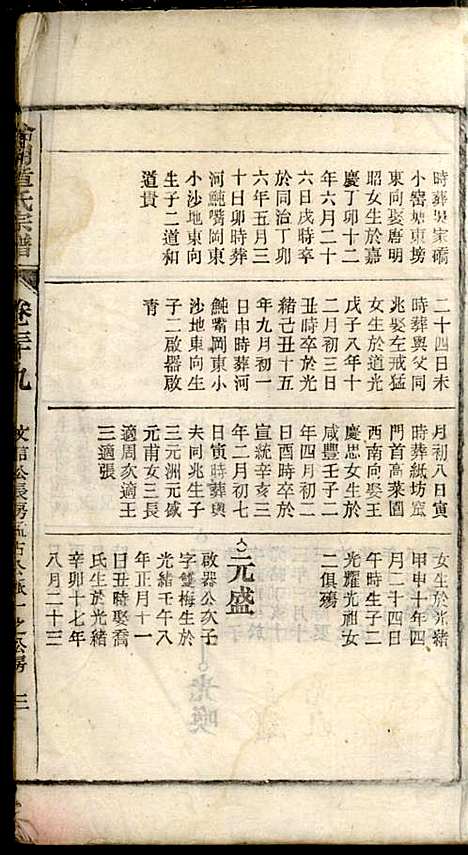 時葬吳家礄
小窖塘東塝
東向娶唐明
昭女生於嘉
慶丁卯十二
年六月二十
六日戌時卒
於同治丁卯
六年五月三
十日卯時葬
河魨嘴岡東
小沙地東向
生子二道和
道貴
二十四日未
時葬與父同
兆娶左戒猛
女生於道光
戊子八年十
二月初三日
丑時卒於光
緒己丑十五
年九月初一
日申時葬河
魨嘴岡東小
沙地東向生
子二啟器啟
青
月初八日寅
時葬紙坊窊
門首高菜園
西南向娶王
慶忠女生於
咸豐壬子二
年四月初二
日酉時卒於
宣統辛亥三
年二月初七
日寅時葬與
夫同兆生子
三元洲元盛
元甫女三長
適周次適王
三適張
女生於光緒
甲申十年四
月二十四日
午時生子二
光耀光祖女
二俱殤
元盛
啟器公次子
字雙梅生於
光緒壬午八
年正月十一
日丑時娶喬
氏生於光緒
辛卯十七年
八月二十三
童氏宗譜
卷三十九
三